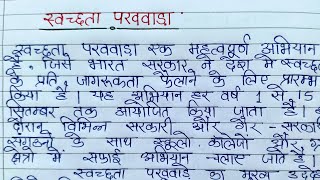 स्वच्छता पखवाडा
स्वच्छता पखवाडा एक महत्वपूर्ण अभियान
है, जिसे भारत सरकार ने देश में स्वच्छता
के प्रति जागरूकता फैलाने के लिए प्रारम्भ
किया है। यह अभियान हर वर्ष 1 से 15
सितम्बर तक आयोजित किया जाता है।
दौरान विभिन्न सरकारी और गैर-सरकारी
संगठनों के साथ स्कूलो, कालेजो और
क्षेत्रो में सफाई अभियान चलाए जाते है।
स्वच्छता पखवाडे का मुख्य उद्देश्य